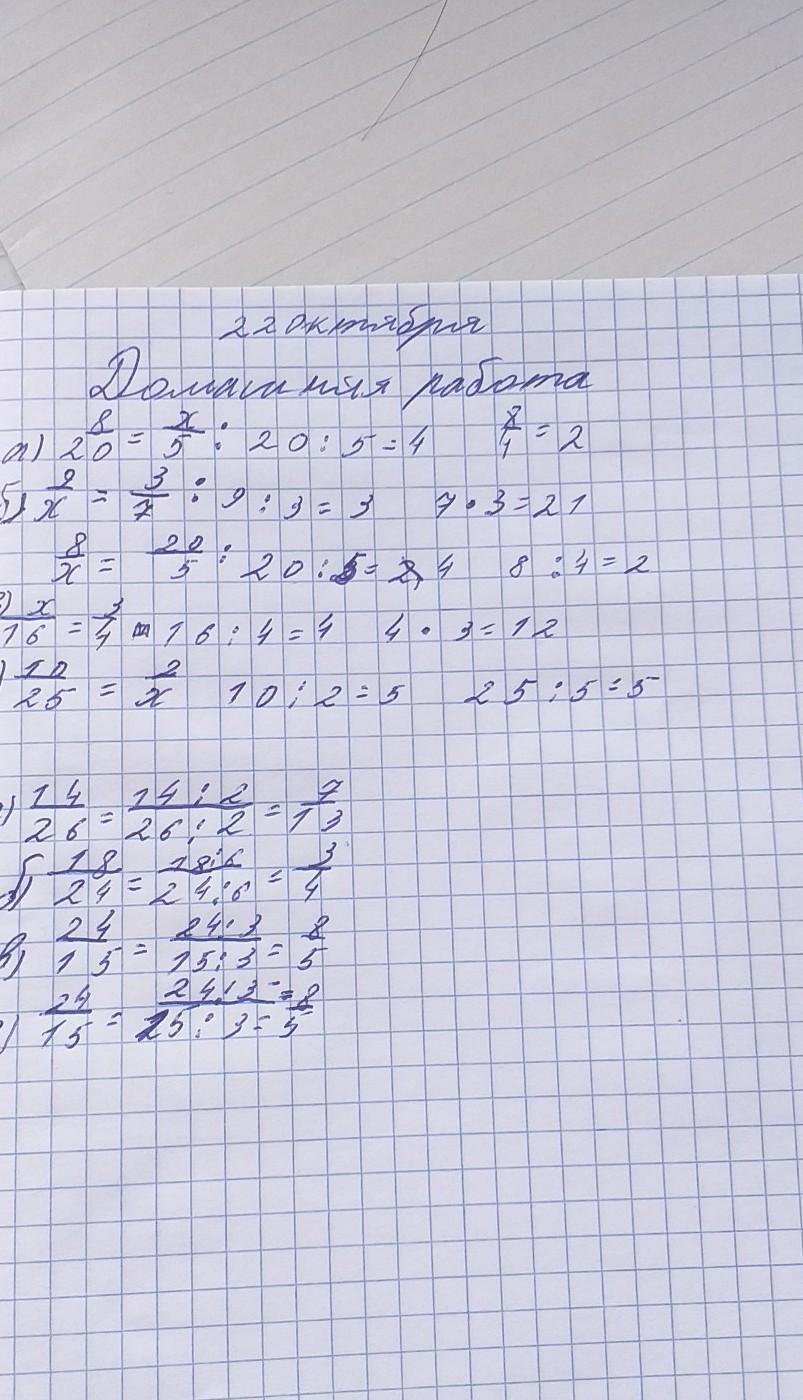 22 октября
Домашняя работа
а) 8/20 = x/5 : 20 : 5 = 4 8/4 = 2
б) 9/x = 3/7 : 9 : 3 = 3 7 • 3 = 21
8/x = 20/5 : 20 : 5 = 4 8 : 4 = 2
) x/16 = 3/4 16 : 4 = 4 4 • 3 = 12
) 10/25 = 2/x 10 : 2 = 5 25 : 5 = 5
) 14/26 = 14 : 2/26 : 2 = 7/13
б) 18/24 = 18:6/24:6 = 3/4
в) 24/15 = 24:3/15:3 = 8/5
) 24/15 = 24:3/15:3 = 8/5